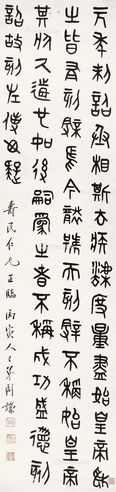 元年制詔丞相斯去疾灋度量盡始皇帝為
之皆有刻辭焉今襲號而刻辭不稱始皇帝
其於久遠也如後嗣為之者不稱成功盛德刻
詔故刻左使毋疑
壽民仁兄正臨丙寅人日弟